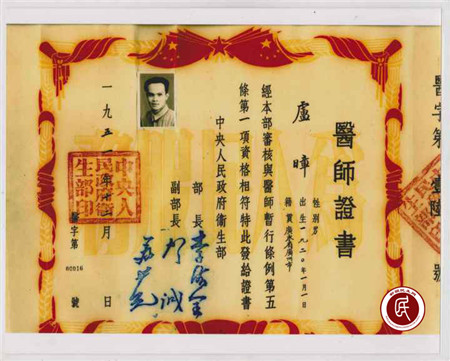 醫師證書
盧暲
性別男
出生一九二〇年一月一日
籍貫廣東省廣州市
經本部審核與醫師暫行條例第五
條第一項資格相符特此發給證書
中央人民政府衛生部
部長 李德全
副部長 賀誠
蘇井觀
一九五一年十二月 日
醫字第 號
中央人
民政府衛
生部印
醫字第
壹
號